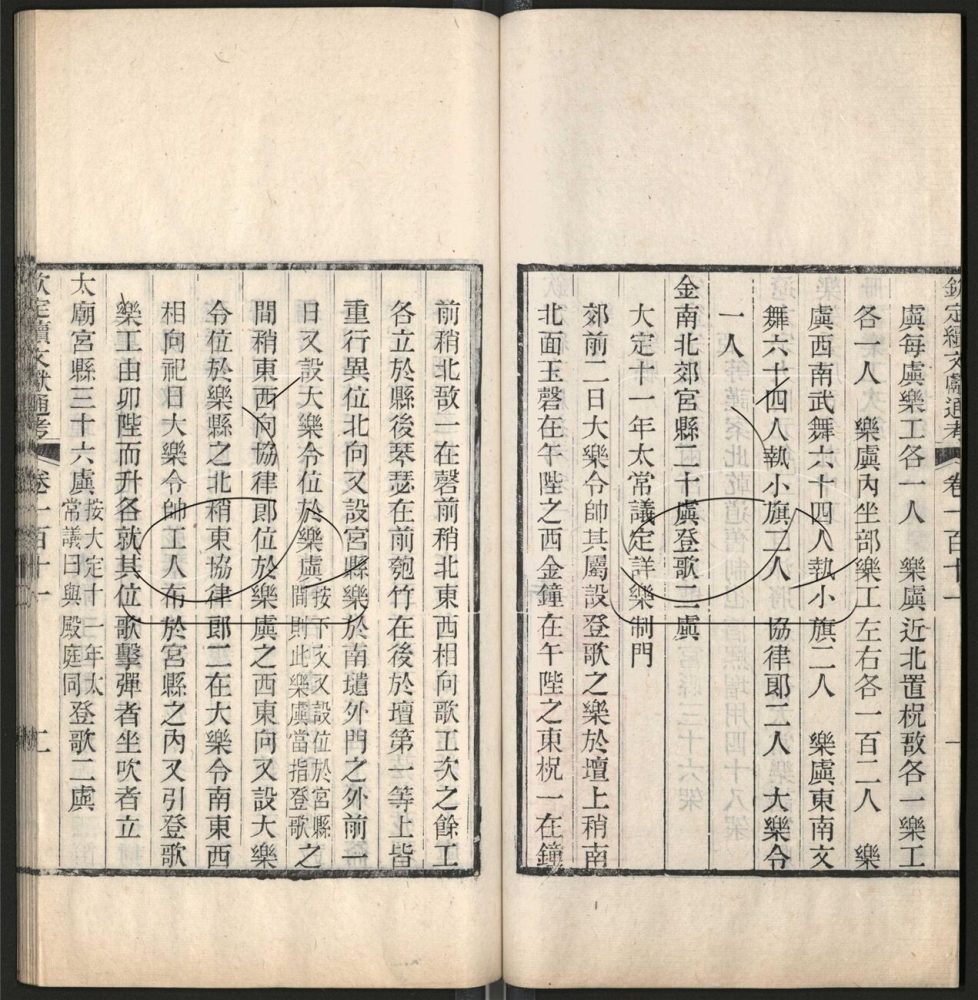 欽定續文獻通考 卷一百十一 一
虡每虡樂工各一人 樂虡近北置柷敔各一樂工
各一人 樂虡內坐部樂工左右各一百二人 樂
虡西南武舞六十四人執小旗二人 樂虡東南文
舞六十四人執小旗二人 協律郎二人 大樂令
一人
金南北郊宮縣二十虡登歌二虡
大定十一年太常議定詳樂制門
郊前二日大樂令帥其屬設登歌之樂於壇上稍南
北面玉磬在午陛之西金鐘在午陛之東柷一在鐘
前稍北敔一在磬前稍北東西相向歌工次之餘工
各立於縣後琴瑟在前匏竹在後於壇第一等上皆
重行異位北向又設宮縣樂於南壝外門之外前一
日又設大樂令位於樂虡按下文又設位於宮縣之間則此樂虡當指登歌之
間稍東西向協律郎位於樂虡之西東向又設大樂
令位於樂縣之北稍東協律郎二在大樂令南東西
相向祀日大樂令帥工人布於宮縣之內又引登歌
樂工由卯陛而升各就其位歌擊彈者坐吹者立
太廟宮縣三十六虡按大定十一年太常議曰與殿庭同登歌二虡
欽定續文獻通考 卷一百十一 二